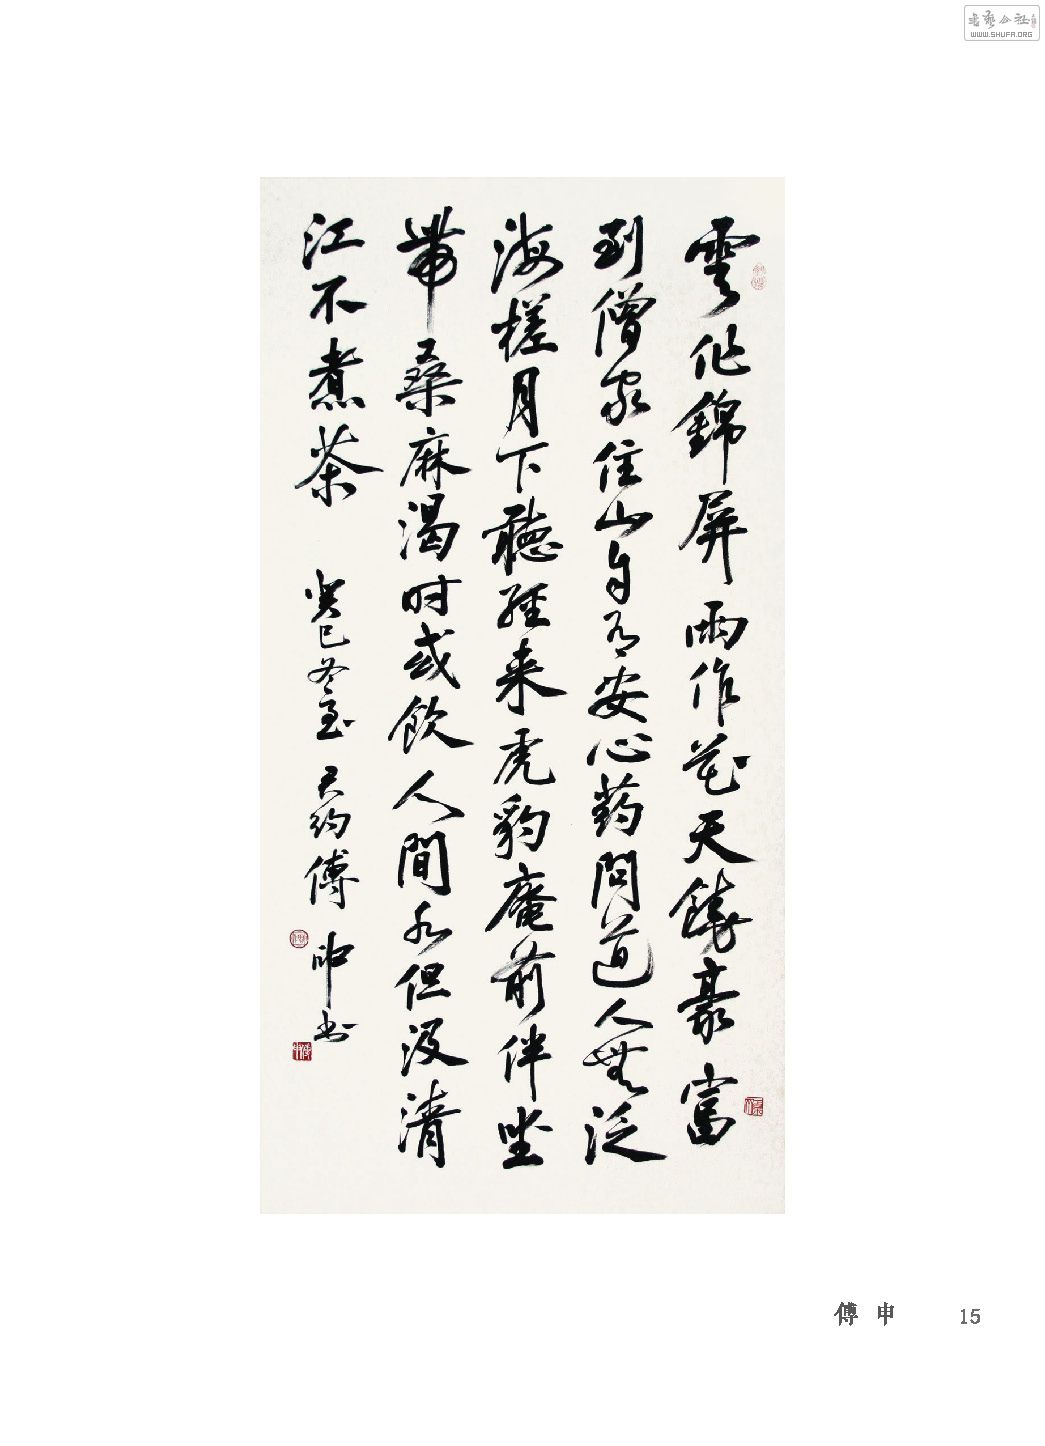 書藝公社
WWW.SHUFA.ORG
雲作錦屏雨作花天饒豪富
到僧家住山自有安心藥問道人無泛
海槎月下聽經来虎豹庵前伴坐
帶桑麻渴时或飲人間水但汲清
江不煮茶 癸巳冬至 君約傅申書
傅申 15